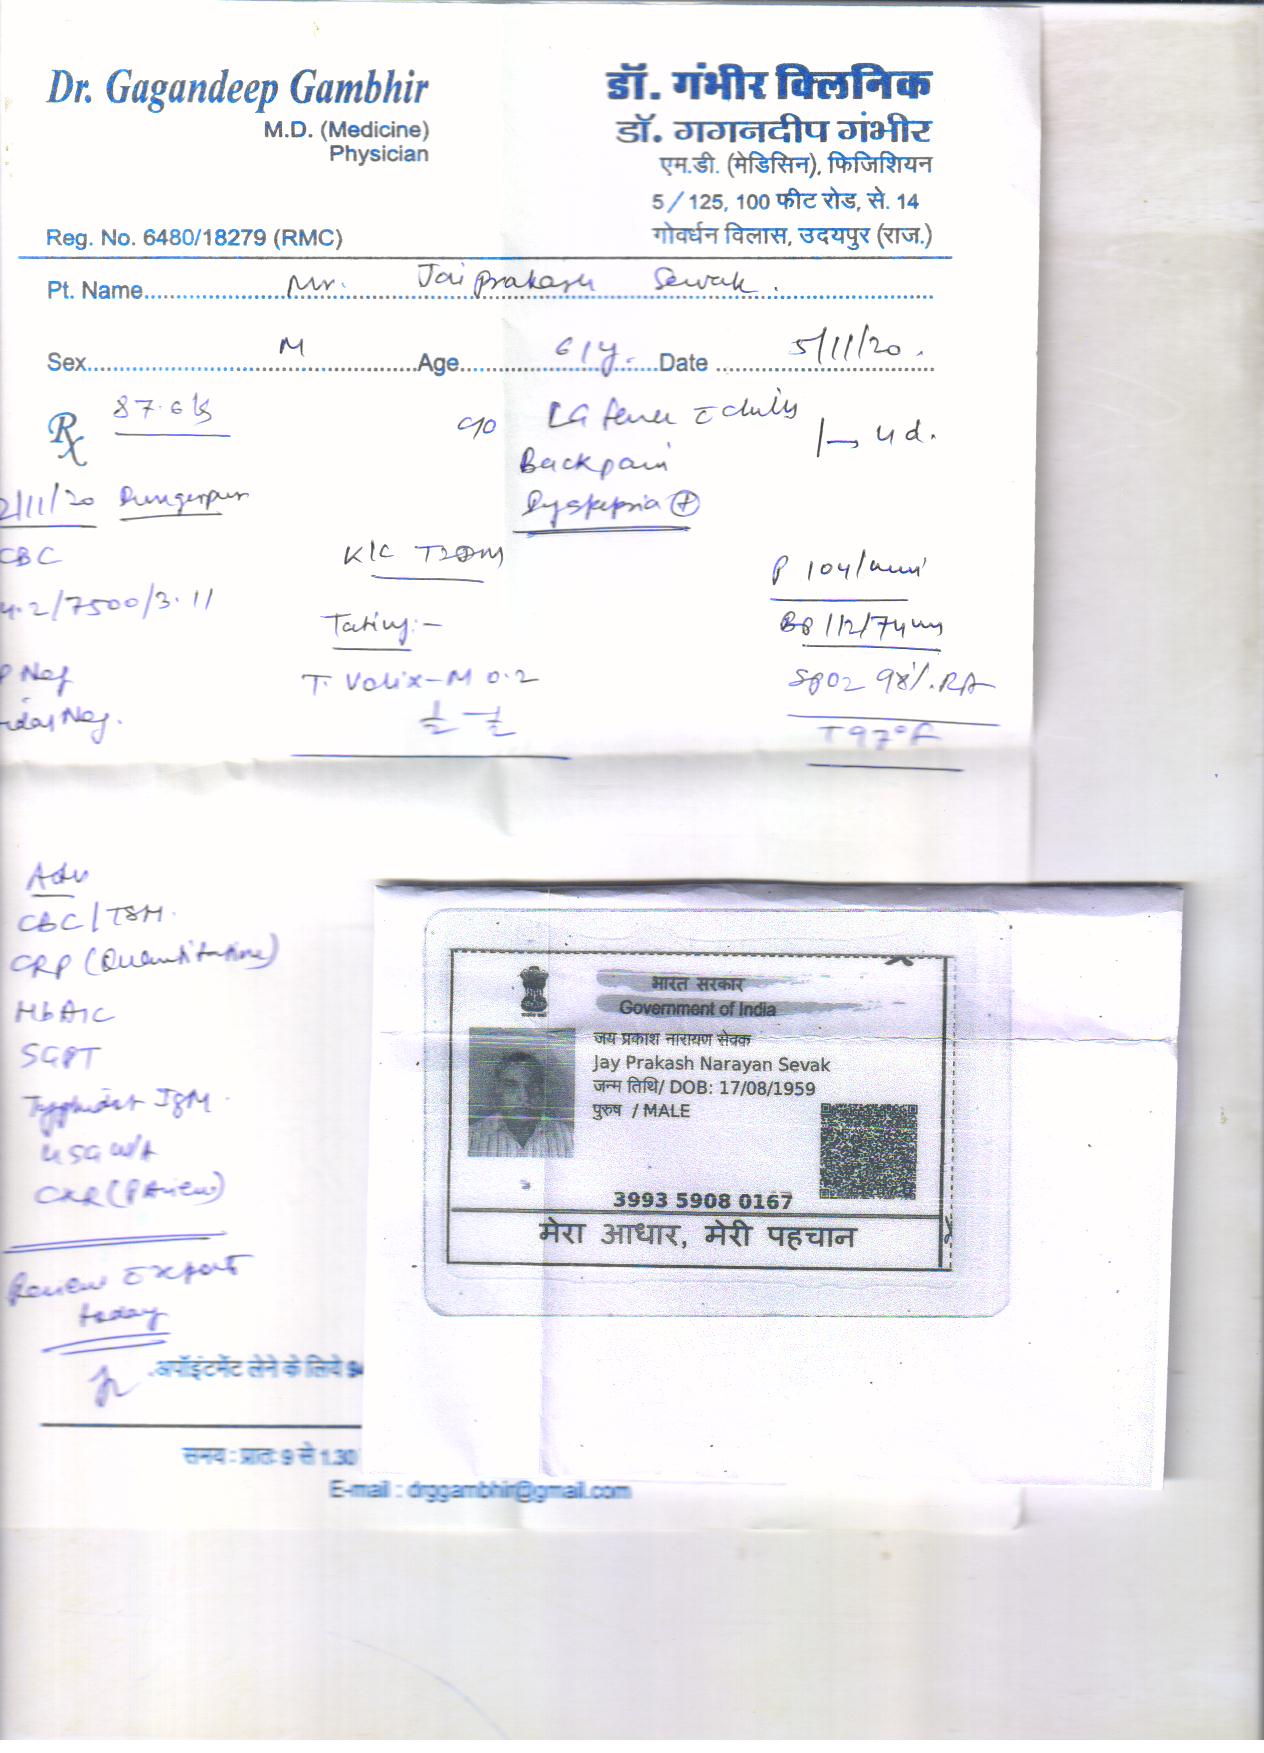 Dr. Gagandeep Gambhir
M.D. (Medicine)
Physician
Reg. No. 6480/18279 (RMC)
डॉ. गंभीर क्लिनिक
डॉ. गगनदीप गंभीर
एम.डी. (मेडिसिन), फिजिशियन
5/125, 100 फीट रोड, से. 14
गोवर्धन विलास, उदयपुर (राज.)
Pt. Name Mr. Jai Prakash Sewak.
Sex M Age 61y. Date 5/11/20.
Rx 87.6 c/o fever
Backpain 4d.
Dyspepsia +
2/11/20 Dungerpur
CBC K/C T2DM
P 104/min
4.2/7500/3.11
Taking:-
BP 112/74
P Neg
T. Volix-M 0.2
SpO2 98% RA
idal Neg.
½ - ½
T 97°F
Adv
CBC/
CRP (Quantitative)
HbA1c
SGPT
Typhidot IgM
USG W/A
CXR (PA view)
Review
today
भारत सरकार
Government of India
जय प्रकाश नारायण सेवक
Jay Prakash Narayan Sevak
जन्म तिथि/ DOB: 17/08/1959
पुरुष / MALE
3993 5908 0167
मेरा आधार, मेरी पहचान
अपॉइंटमेंट लेने के लिये
समय : प्रातः 9 से 1.30
E-mail : drggambhir@gmail.com